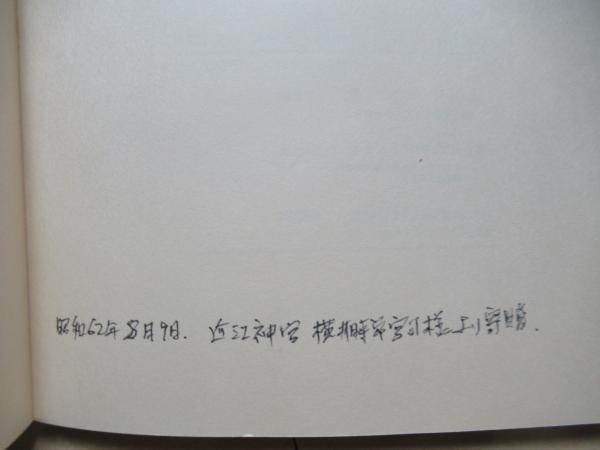 昭和62年8月9日. 近江神宮 横井時常宮司様より寄贈.